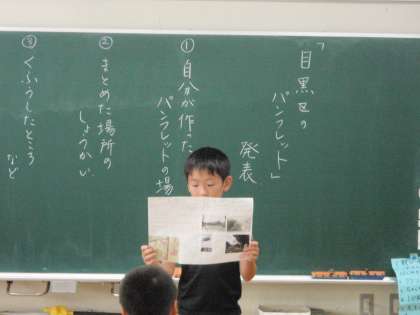 「目黒区の
パンフレット」
発表
①自分が作った
パンフレットの場
②まとめた場所の
しょうかい
③くふうしたところ
など